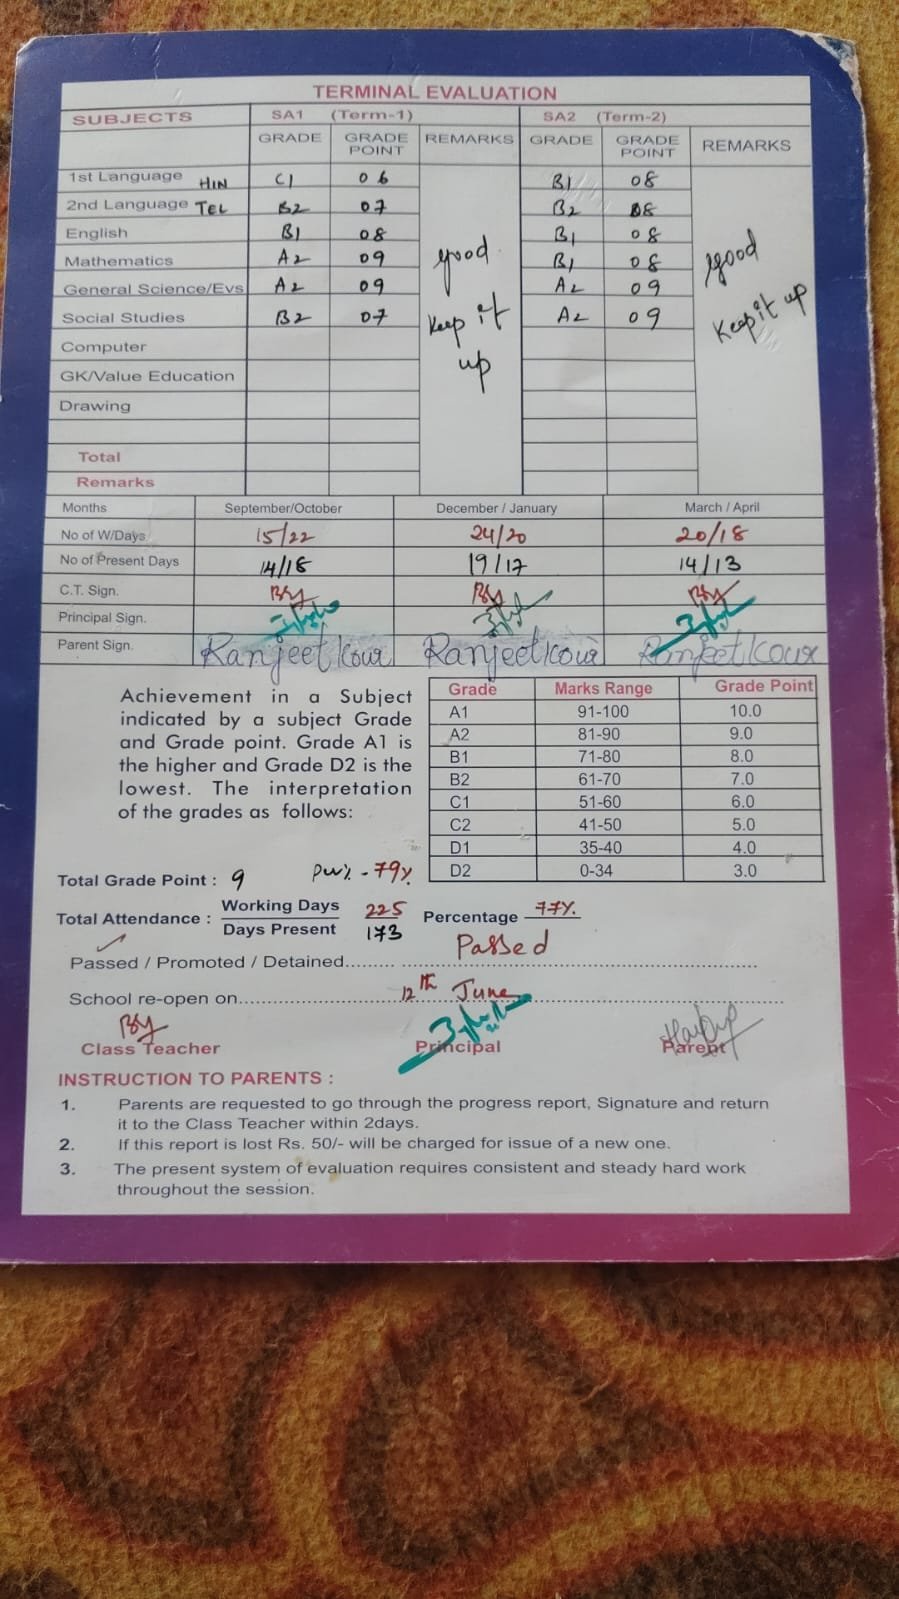 TERMINAL EVALUATION
SUBJECTS SA1 (Term-1) SA2 (Term-2)
GRADE GRADE POINT REMARKS GRADE GRADE POINT REMARKS
1st Language HIN C1 06 B1 08
2nd Language TEL B2 07 B2 08
English B1 08 B1 08
Mathematics A2 09 B1 08
General Science/Evs A2 09 A2 09
Social Studies B2 07 A2 09
good keep it up
good keep it up
Computer
GK/Value Education
Drawing
Total
Remarks
Months September/October December / January March / April
No of W/Days 15/22 24/20 20/18
No of Present Days 14/18 19/17 14/13
C.T. Sign.
Principal Sign.
Parent Sign. Ranjeet Kour Ranjeet Kour Ranjeet Kour
Achievement in a Subject
indicated by a subject Grade
and Grade point. Grade A1 is
the higher and Grade D2 is the
lowest. The interpretation
of the grades as follows:
Grade Marks Range Grade Point
A1 91-100 10.0
A2 81-90 9.0
B1 71-80 8.0
B2 61-70 7.0
C1 51-60 6.0
C2 41-50 5.0
D1 35-40 4.0
D2 0-34 3.0
Total Grade Point : 9 - 79%
Total Attendance : Working Days 225 Percentage 77%
Days Present 173
Passed / Promoted / Detained........ Passed
School re-open on........ 12th June
Class Teacher Principal Parent
INSTRUCTION TO PARENTS :
1. Parents are requested to go through the progress report, Signature and return
it to the Class Teacher within 2days.
2. If this report is lost Rs. 50/- will be charged for issue of a new one.
3. The present system of evaluation requires consistent and steady hard work
throughout the session.